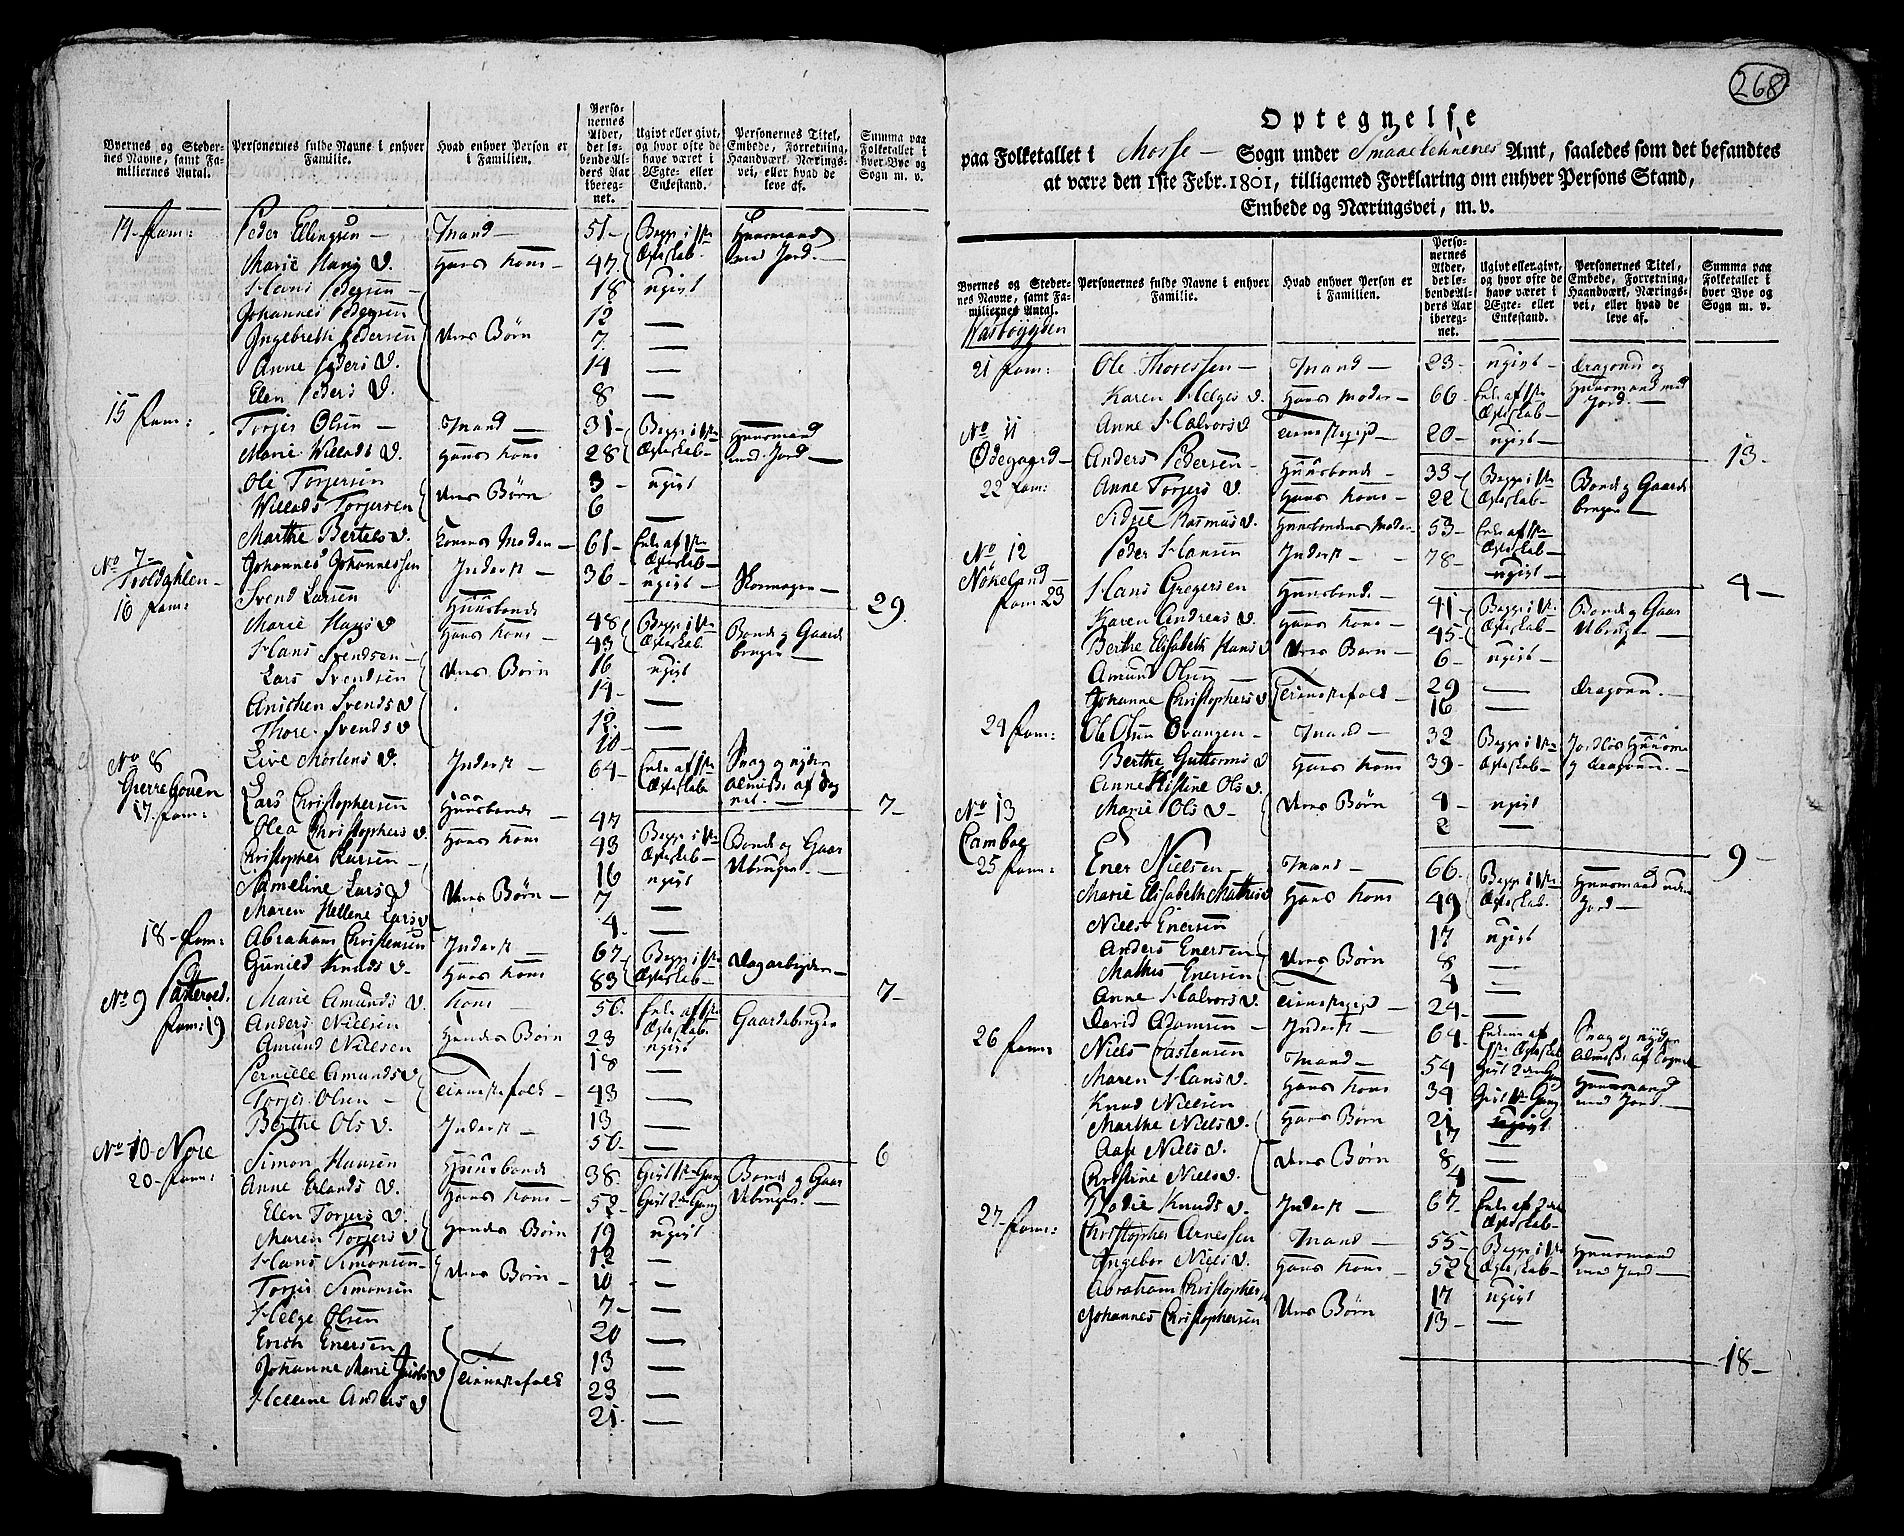 268
Byernes og Steder-
nes Navne, samt Fa-
miliernes Antal.
Personernes fulde Navne i enhver
Familie.
Hvad enhver Person er
i Familien.
Perso-
nernes
Alder,
det lø-
bende Al-
ders Aar
iberegn-
net.
Ugivt eller givt,
og hvor ofte de
have været i
Ægte- eller
Enkestand.
Personernes Titel,
Embede, Forretning,
Haandværk, Nærings-
vei, eller hvad de
leve af.
Summa paa
Folketallet i
hver Bye og
Sogn m. v.
14 fam: Peder Ellingsen – Mand – 51 – Begge i 1ste Huusmand
Marie Hans D. Hans Kone – 47 Ægteskab. med Jord. –
Hans Pedersen – 18 ugivt
Johannes Pedersen 12 —
Ingebreth Pedersen Deres Børn 7. —
Anne Peders D. 14 —
Elen Peders D. 8 – —
15 fam: Torjer Olsen – Mand – 31 – Begge i 1ste Huusmand
Marie Willads D. Hans Kone 28 Ægteskab – med Jord –
Ole Torjersen 3 – ugivt
Willads Torjersen Deres Børn 6 —
Marthe Bertels D. Konens Moder – 61 – Enke af 1ste Ægteskab –
Johannes Johannessen Inderst – 36 – ugivt – Skomager –
29.
No 7 Troldahlen –
16 fam: Svend Larsen Huusbonde 48 Begge i 1ste Bonde og Gaard
Marie Hans D Hans Kone 43 Ægteskab. bruger –
Hans Svendsen – 16 ugivt
Lars Svendsen Deres Børn 14 – —
Anichen Svends D 12. —
Thore Svends D 10 – —
Live Mortens D. Inderst – 64 – Enke af 1ste Ægteskab Svag og nyder almisse af Sog net. –
7 –
No 8
Gierrehouen
17 fam: Lars Christophersen Huusbonde – 47 Begge i 1ste Bonde og Gaar
Olea Christophers D. Hans Kone 43 Ægteskab – dbruger –
Christopher Larsen – 16 ugivt
Nameline Lars D Deres Børn – 7 —
Maren Hellene Lars D 4. —
18 – fam: Abraham Christensen Inderst – 67 – Begge i 1ste Dagarbeyder –
Gunild Knuds D. Hans Kone 83 Ægteskab –
7 –
No 9
fam: 19 Marie Amunds D. Kone – 56. Enke af 1ste Ægteskab. Gaardsbruger
Anders Nielsen Hendes Børn 23 ugivt
Amund Nielsen 18 —
Pernille Amunds D Tienestefolk – 43 —
Torjer Olsen – 13 —
Berthe Ols D. Inderst – 50. —
6
No 10 Nore
20 – fam: Simon Hansen Huusbonde 38. Givt 1ste Gang Bonde og Gaar
Anne Erlands D. Hans Kone – 52 – Givt 2den Gang dbruger –
Elen Torjers D. Hendes Børn 19 ugivt
Maren Torjers D 12 —
Hans Simonsen – Deres Børn – 10 —
Torjer Simonsen 7 – —
Helge Olsen 20 —
Erich Enersen 13 —
Johanne Marie Jacobs D Tienestefolk 23 —
Hellene Anders D 21. —
Optegnelse
paa Folketallet i Mosse – Sogn under Smaaelehnenes Amt, saaledes som det befandtes
at være den 1ste Febr. 1801, tilligemed Forklaring om enhver Persons Stand,
Embede og Næringsvei, m. v.
Byernes og Steder-
nes Navne, samt Fa-
miliernes Antal.
Personernes fulde Navne i enhver
Familie.
Hvad enhver Person er
i Familien.
Perso-
nernes
Alder,
det lø-
bende Al-
ders Aar
iberegn-
net.
Ugivt eller givt,
og hvor ofte de
have været i
Ægte- eller
Enkestand.
Personernes Titel,
Embede, Forretning,
Haandværk, Nærings-
vei, eller hvad de
leve af.
Summa paa
Folketallet i
hver Bye og
Sogn m. v.
21 fam: Ole Thoressen – Mand – 23 – ugivt – Dragoun og
Karen Helges D. Hans Moder – 66 – Enke af 1ste Ægteskab – Huusmand med Jord. –
Anne Halvors D Tienestepige – 20 – ugivt –
13 –
No 11
Ødegaard –
22 fam: Anders Pedersen – Huusbonde – 33 – Begge i 1ste Bonde og Gaards
Anne Torjers D. Hans Kone – 22 Ægteskab – bruger –
Sidsel Rasmus D. Huusbondens Moder 53 – Enke af 1ste Ægteskab –
Peder Hansen Inderst – 78 – ugivt –
4 –
No 12
Nøkeland –
fam 23 Hans Gregersen Huusbonde – 41 – Begge i 1ste Bonde og Gaar
Karen Andreas D. Hans Kone – 45 – Ægteskab – dbruger –
Berthe Elisabeth Hans D Deres Barn – 6 – ugivt –
Amund Olsen – Tienestefolk – 29 — Dragoun. –
Johanne Christophers D 16 —
24 fam: Ole Olsen Ovangen – Mand – 32 Begge i 1ste Jordløs Huusm:
Berthe Guttorms D Hans Kone 39 – Ægteskab – og Dragoun. –
Anne Kistine Ols D. Deres Børn 4 – ugivt
Marie Ols D – 2 —
9 –
No 13
Camboe
25 fam: Ener Nielsen Mand – 66. Begge i 1ste Huusmand uden
Marie Elisabeth Mathis D Hans Kone 49 Ægteskab. Jord –
Niels Enersen 17 ugivt
Anders Enersen – Deres Børn – 8 —
Mathis Enersen 4 —
Anne Halvors D. Tienestepige – 24 – —
David Adamsen – Inderst – 64 Enkem af 1ste Ægteskab Svag og nyder almisse af Sognet
26 fam: Niels Castensen Mand – 54 Givt 2den Gang Huusmand
Maren Hans D. Hans Kone 34 Givt 1ste Gang med Jord –
Knud Nielsen Hans Børn 21 ugivt
Marthe Niels D. 17 —
Aase Niels D. Deres Børn 8 —
Christine Niels D. 4 —
Inderst – 67 – Enke af 3die Ægteskab –
27 – fam: Christopher Arnessen Mand – 55 – Begge i 1ste Huusmand
Ingebor Niels D. Hans Kone – 52 Ægteskab – med Jord –
Abraham Christophersen Deres Børn 17 ugivt
Johannes Christophersen 13 – —
18 –